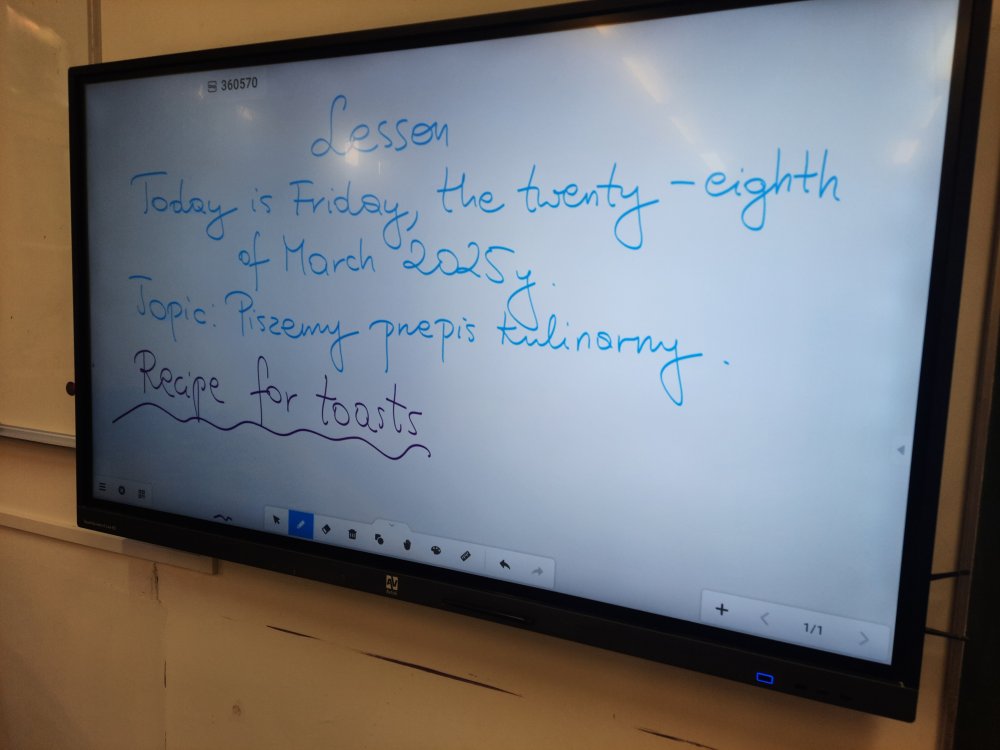 360570
Lesson
Today is Friday, the twenty-eighth
of March 2025y.
Topic: Piszemy przepis kulinarny.
Recipe for toasts
AV
1/1